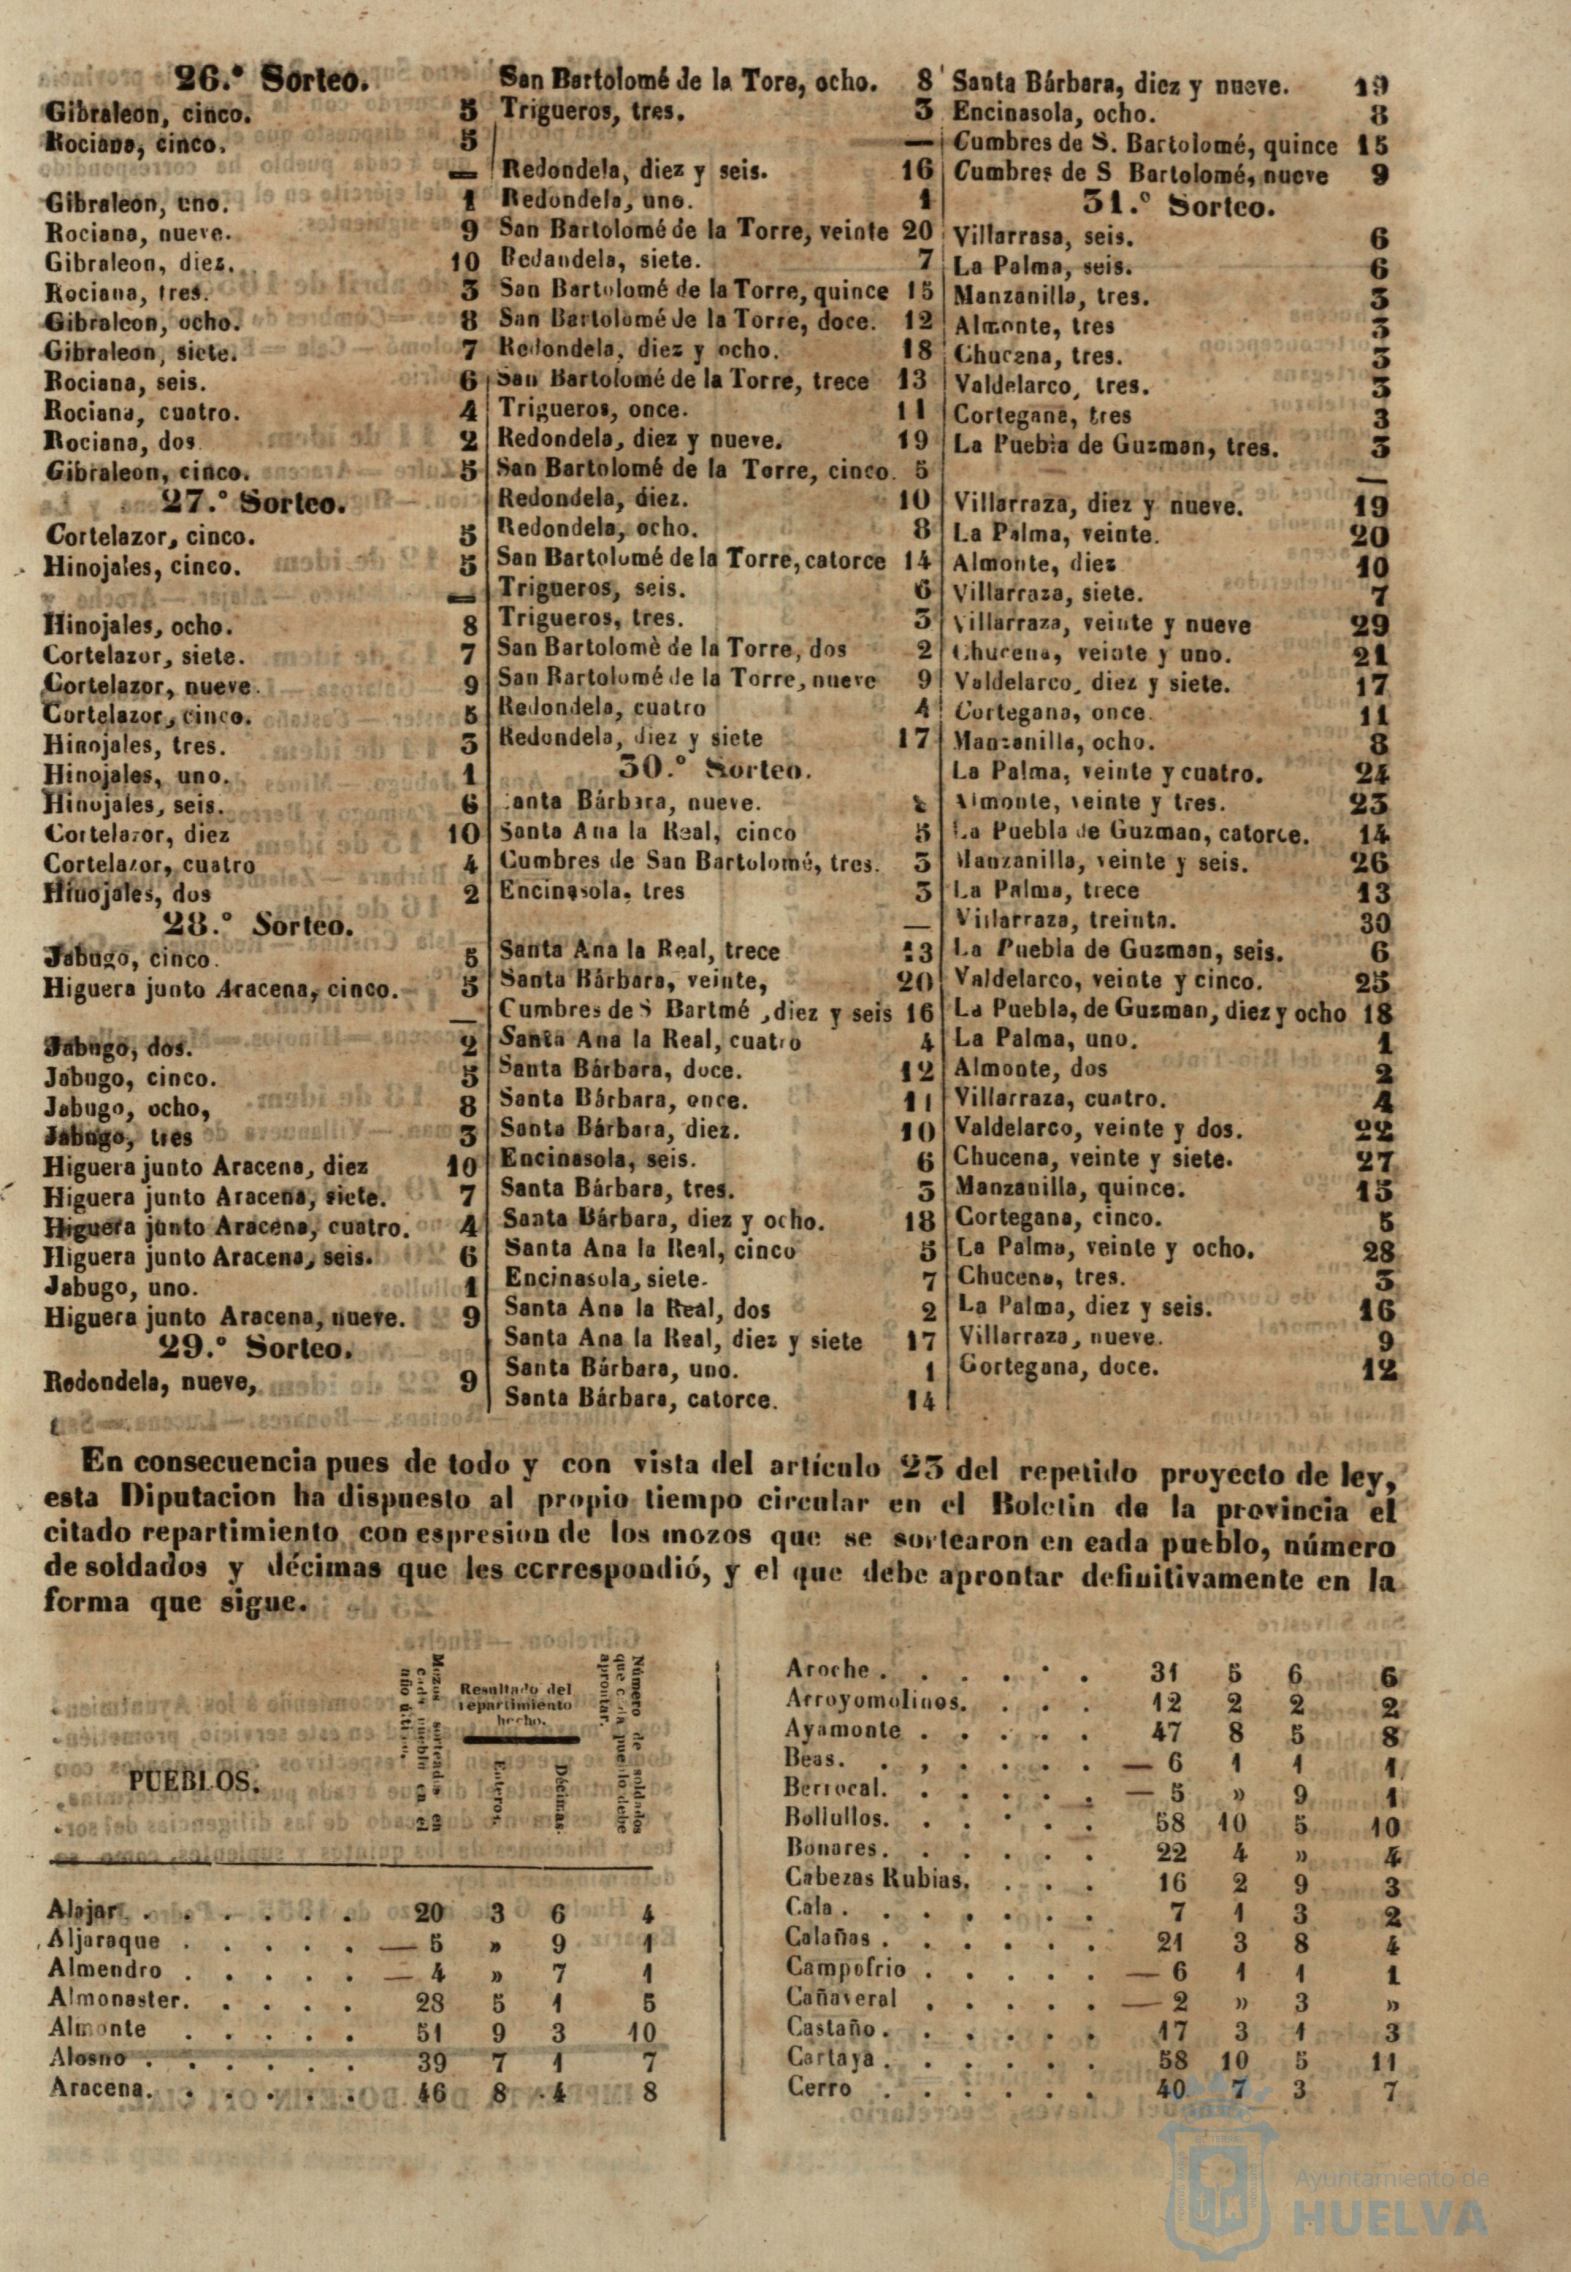 26.º Sorteo.
Gibraleon, cinco. 5
Rociana, cinco. 5
—
Gibraleon, uno. 1
Rociana, nueve. 9
Gibraleon, diez. 10
Rociana, tres. 3
Gibraleon, ocho. 8
Gibraleon, siete. 7
Rociana, seis. 6
Rociana, cuatro. 4
Rociana, dos 2
Gibraleon, cinco. 5
27.º Sorteo.
Cortelazor, cinco. 5
Hinojales, cinco. 5
—
Hinojales, ocho. 8
Cortelazor, siete. 7
Cortelazor, nueve. 9
Cortelazor, cinco. 5
Hinojales, tres. 3
Hinojales, uno. 1
Hinojales, seis. 6
Cortelazor, diez 10
Cortelazor, cuatro 4
Hinojales, dos 2
28.º Sorteo.
Jabugo, cinco. 5
Higuera junto Aracena, cinco. 5
—
Jabugo, dos. 2
Jabugo, cinco. 5
Jabugo, ocho, 8
Jabugo, tres 3
Higuera junto Aracena, diez 10
Higuera junto Aracena, siete. 7
Higuera junto Aracena, cuatro. 4
Higuera junto Aracena, seis. 6
Jabugo, uno. 1
Higuera junto Aracena, nueve. 9
29.º Sorteo.
Redondela, nueve, 9
San Bartolomé de la Tore, ocho. 8
Trigueros, tres. 3
—
Redondela, diez y seis. 16
Redondela, uno. 1
San Bartolomé de la Torre, veinte 20
Redandela, siete. 7
San Bartolomé de la Torre, quince 15
San Bartolomé de la Torre, doce. 12
Redondela, diez y ocho. 18
San Bartolomé de la Torre, trece 13
Trigueros, once. 11
Redondela, diez y nueve. 19
San Bartolomé de la Torre, cinco. 5
Redondela, diez. 10
Redondela, ocho. 8
San Bartolomé de la Torre, catorce 14
Trigueros, seis. 6
Trigueros, tres. 3
San Bartolomè de la Torre, dos 2
San Bartolomé de la Torre, nueve 9
Redondela, cuatro 4
Redondela, diez y siete 17
30.º Sorteo.
Santa Bárbara, nueve.
Santa Ana la Real, cinco 5
Cumbres de San Bartolomé, tres. 3
Encinasola, tres 3
—
Santa Ana la Real, trece 13
Santa Bárbara, veinte, 20
Cumbres de S Bartmé, diez y seis 16
Santa Ana la Real, cuatro 4
Santa Bárbara, doce. 12
Santa Bárbara, once. 11
Santa Bárbara, diez. 10
Encinasola, seis. 6
Santa Bárbara, tres. 3
Santa Bárbara, diez y ocho. 18
Santa Ana la Real, cinco 5
Encinasola, siete. 7
Santa Ana la Real, dos 2
Santa Ana la Real, diez y siete 17
Santa Bárbara, uno. 1
Santa Bárbara, catorce. 14
Santa Bárbara, diez y nueve. 19
Encinasola, ocho. 8
Cumbres de S. Bartolomé, quince 15
Cumbres de S Bartolomé, nueve 9
31.º Sorteo.
Villarrasa, seis. 6
La Palma, seis. 6
Manzanilla, tres. 3
Almonte, tres 3
Chucena, tres. 3
Valdelarco, tres. 3
Cortegana, tres 3
La Puebla de Guzman, tres. 3
—
Villarraza, diez y nueve. 19
La Palma, veinte. 20
Almonte, diez 10
Villarraza, siete. 7
Villarraza, veinte y nueve 29
Chucena, veinte y uno. 21
Valdelarco, diez y siete. 17
Cortegana, once. 11
Manzanilla, ocho. 8
La Palma, veinte y cuatro. 24
Almonte, veinte y tres. 23
La Puebla de Guzman, catorce. 14
Manzanilla, veinte y seis. 26
La Palma, trece 13
Villarraza, treinta. 30
La Puebla de Guzman, seis. 6
Valdelarco, veinte y cinco. 25
La Puebla, de Guzman, diez y ocho 18
La Palma, uno. 1
Almonte, dos 2
Villarraza, cuatro. 4
Valdelarco, veinte y dos. 22
Chucena, veinte y siete. 27
Manzanilla, quince. 15
Cortegana, cinco. 5
La Palma, veinte y ocho. 28
Chucena, tres. 3
La Palma, diez y seis. 16
Villarraza, nueve. 9
Cortegana, doce. 12
En consecuencia pues de todo y con vista del artículo 23 del repetido proyecto de ley,
esta Diputacion ha dispuesto al propio tiempo circular en el Boletin de la provincia el
citado repartimiento con espresion de los mozos que se sortearon en cada pueblo, número
de soldados y décimas que les correspondió, y el que debe aprontar definitivamente en la
forma que sigue.
PUEBLOS.
Mozos sorteados en
cada pueblo en el
año último.
Resultado del
repartimiento
hecho.
Enteros.
Décimas.
Número de soldados
que cada pueblo debe
aprontar.
Alajar. . . . . . . . 20 3 6 4
Aljaraque . . . . . — 5 » 9 1
Almendro . . . . . — 4 » 7 1
Almonaster. . . . . 28 5 1 5
Almonte . . . . . 51 9 3 10
Alosno . . . . . . 39 7 1 7
Aracena. . . . . . 46 8 4 8
Aroche . . . . . . 31 5 6 6
Arroyomolinos. . . . 12 2 2 2
Ayamonte . . . . . 47 8 5 8
Beas. . , . . . . — 6 1 1 1
Berrocal. . . . . . — 5 » 9 1
Bollullos. . . . . . 58 10 5 10
Bonares. . . . . . 22 4 » 4
Cabezas Rubias. . . . 16 2 9 3
Cala . . . . . . . 7 1 3 2
Calañas . . . . . . 21 3 8 4
Campofrio . . . . . — 6 1 1 1
Cañaveral . . . . . — 2 » 3 »
Castaño . . . . . . 17 3 1 3
Cartaya . . . . . . 58 10 5 11
Cerro . . . . . . 40 7 3 7
Ayuntamiento de
HUELVA